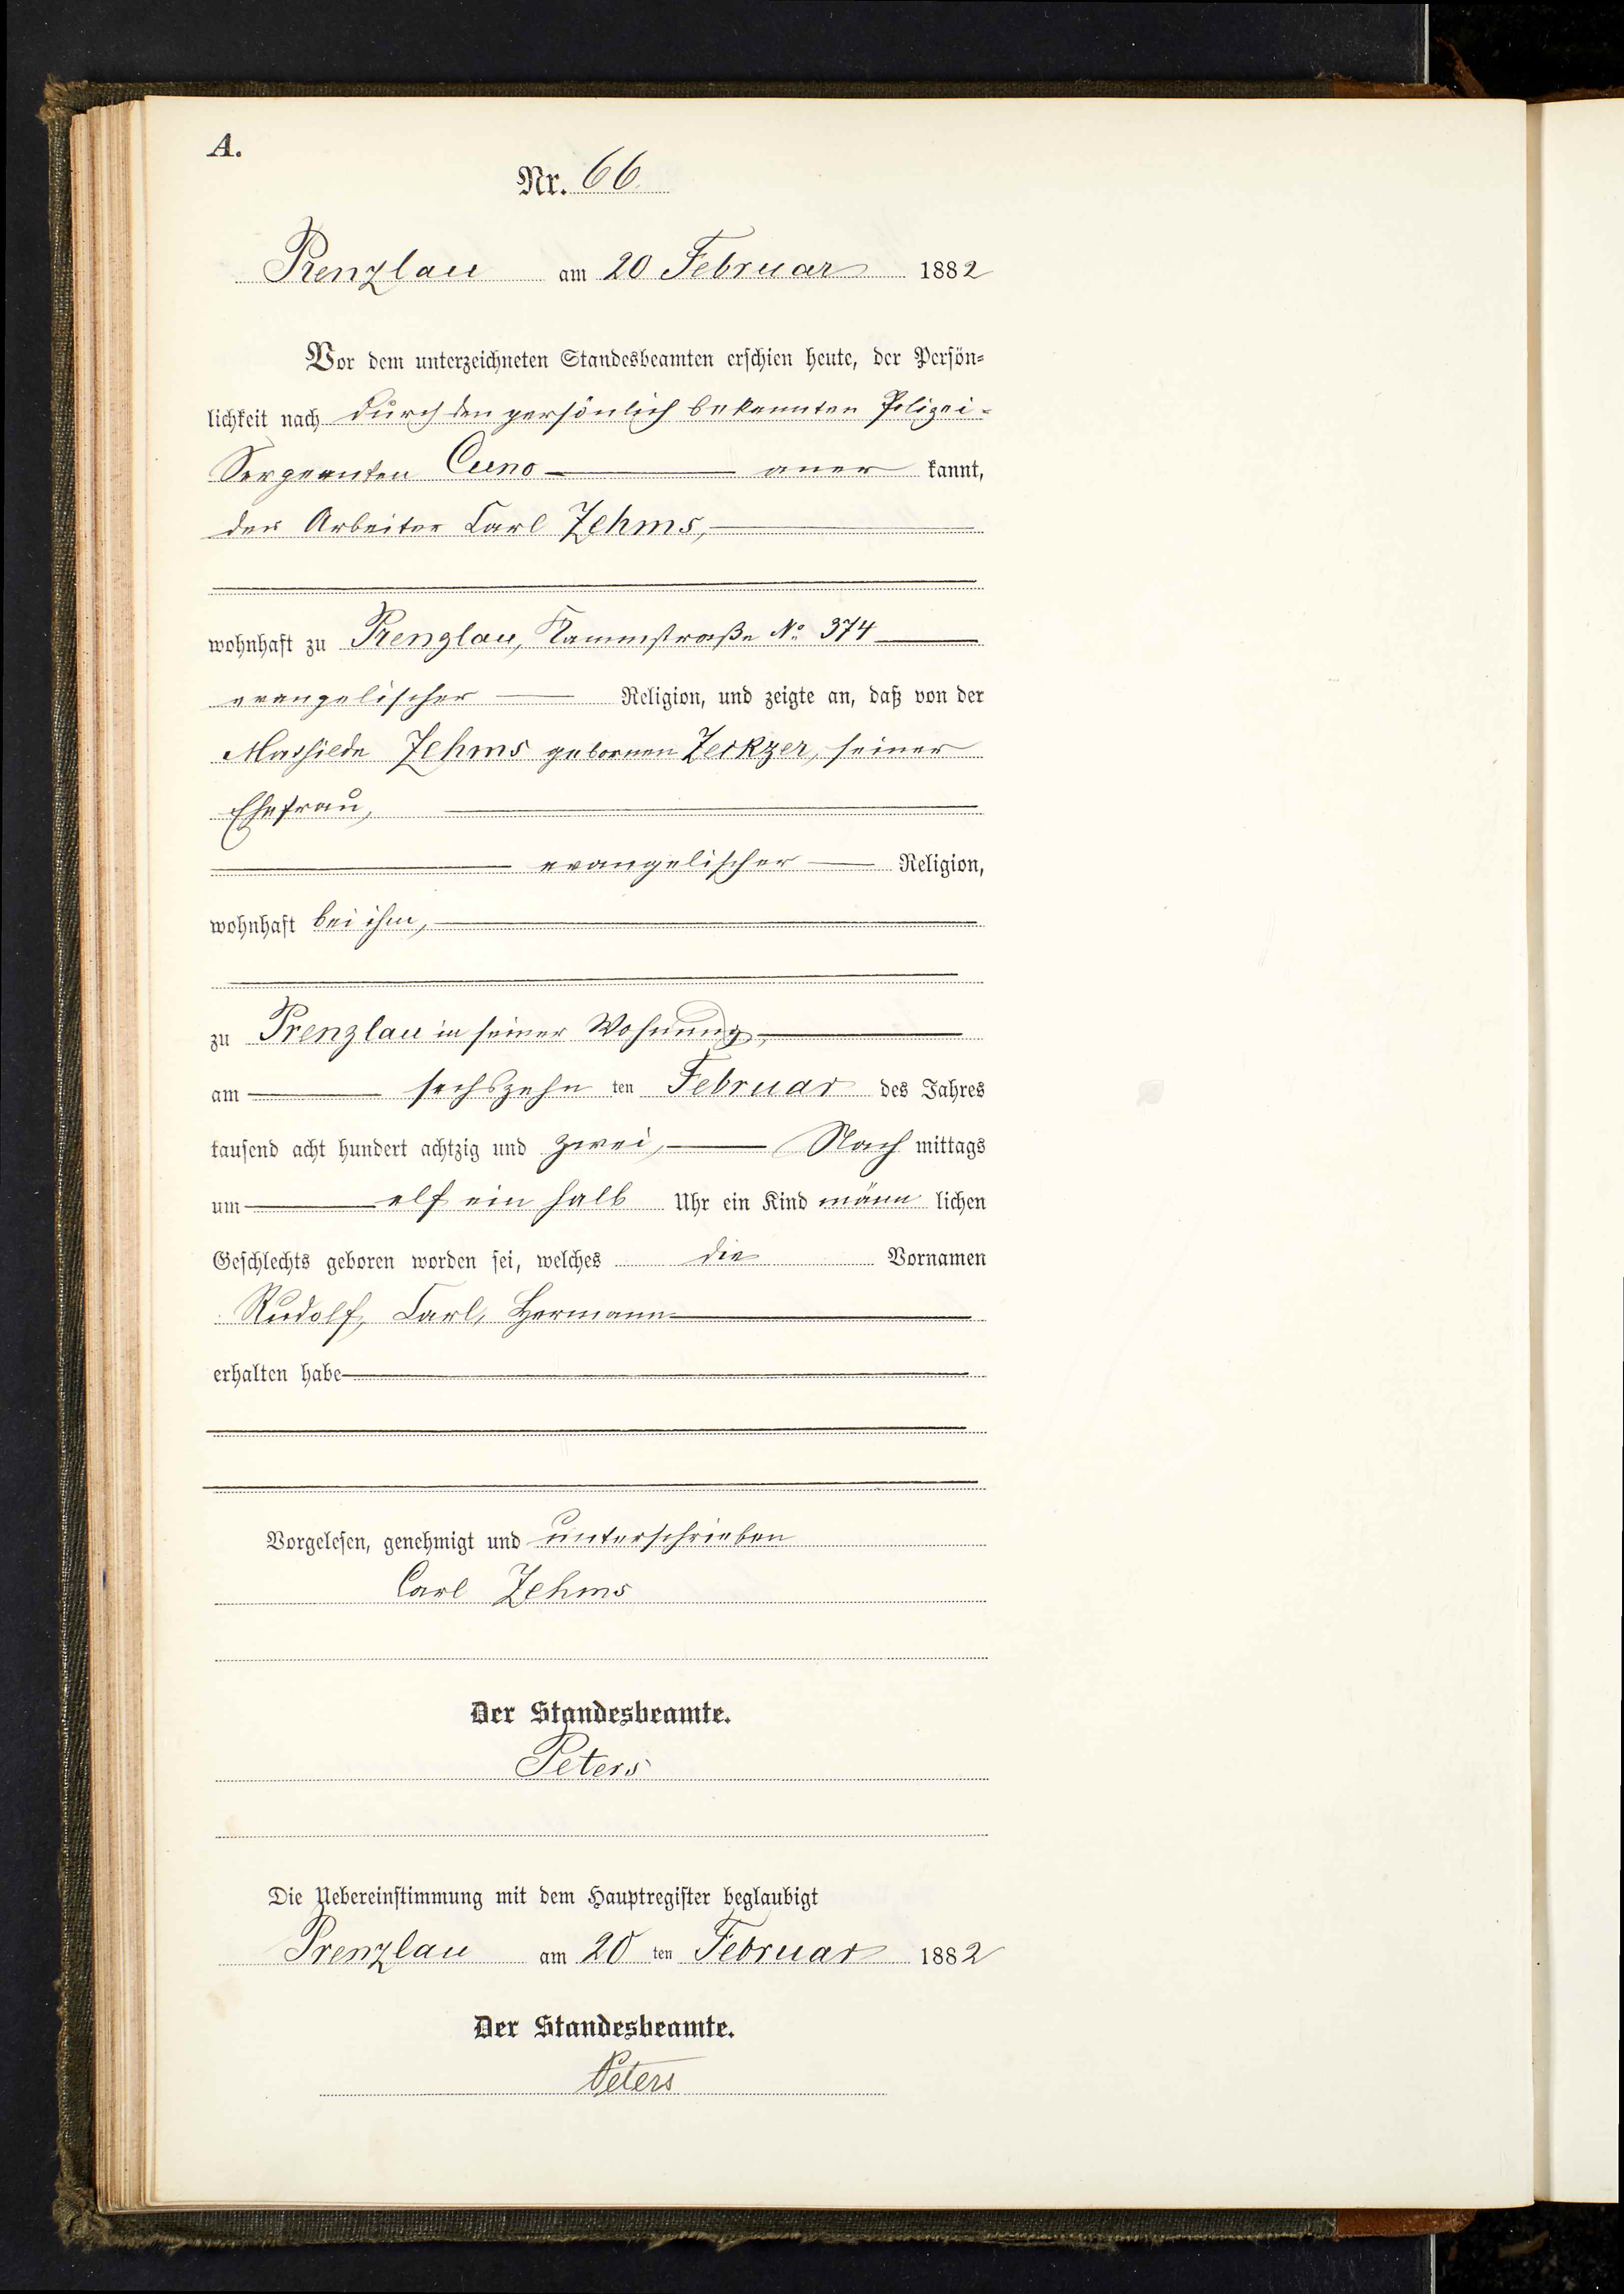 A.
Nr. 66
Prenzlau am 20 Februar 1882
Vor dem unterzeichneten Standesbeamten erschien heute, der Persön-
lichkeit nach durch den persönlich bekannten Polizei-
Sergeanten Cuno aner kannt,
der Arbeiter Carl Zehms,
wohnhaft zu Prenzlau, Kammstraße No 374
evangelischer Religion, und zeigte an, daß von der
Mathilde Zehms gebornen seiner
Ehefrau,
evangelischer Religion,
wohnhaft bei ihm,
zu Prenzlau in seiner Wohnung,
am sechszehn ten Februar des Jahres
tausend acht hundert achtzig und zwei, Nach mittags
um elf ein halb Uhr ein Kind männ lichen
Geschlechts geboren worden sei, welches die Vornamen
Rudolf, Carl, Hermann
erhalten habe
Vorgelesen, genehmigt und unterschrieben
Carl Zehms
Der Standesbeamte.
Peters
Die Uebereinstimmung mit dem Hauptregister beglaubigt
Prenzlau am 20 ten Februar 1882
Der Standesbeamte.
Peters